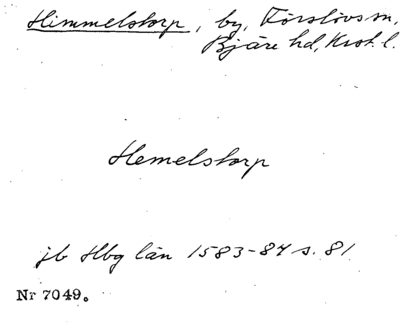 Himmelstorp, by, Förslövs sn,
Bjäre hd, Krist. l.
Hemelstorp
jb Hbg län 1583-84 s. 81
Nr 7049.